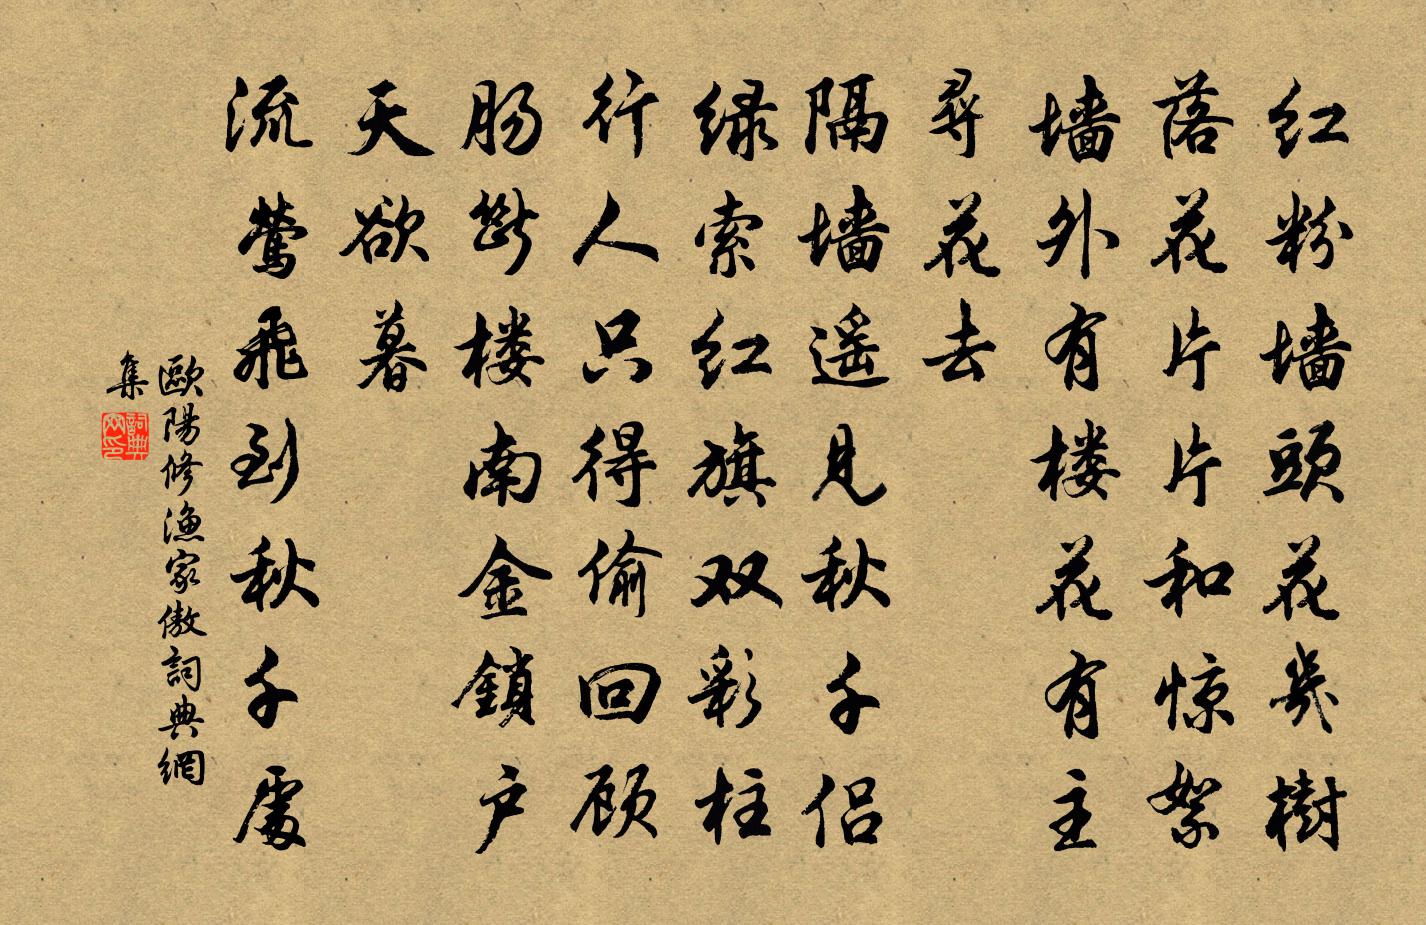 红粉墙頭花幾樹
落花片片和惊絮
墙外有楼花有主
尋花去
隔墙遥见秋千侣
绿索红旗双彩柱
行人只得偷回顾
肠断楼南金鎖户
天欲暮
流莺飛到秋千處
歐陽修漁家傲詞典網
集
詞典网印